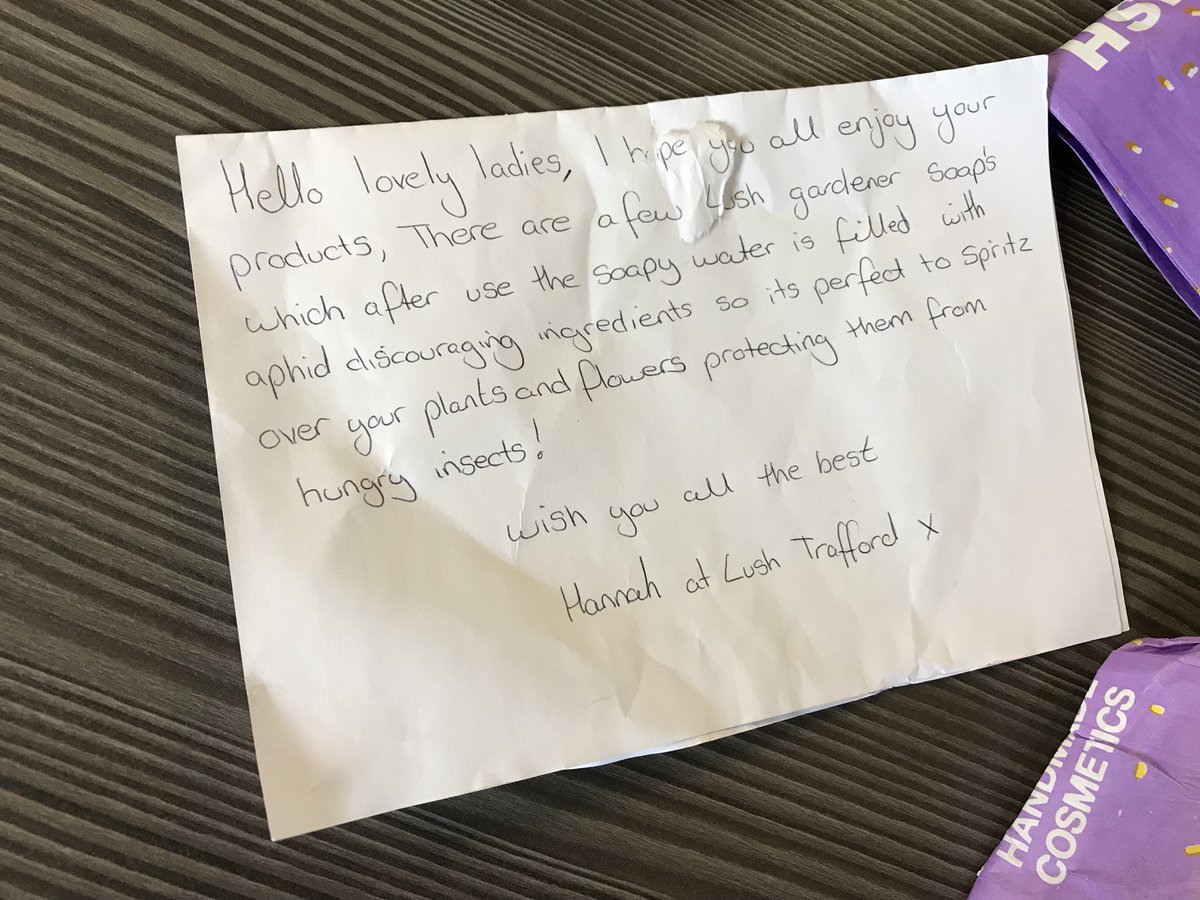 Hello lovely ladies, I hope you all enjoy your
products, There are a few Lush gardener Soap's
which after use the soapy water is filled with
aphid discouraging ingredients so its perfect to spritz
over your plants and flowers protecting them from
hungry insects!
wish you all the best
Hannah at Lush Trafford x
HANDMADE
COSMETICS